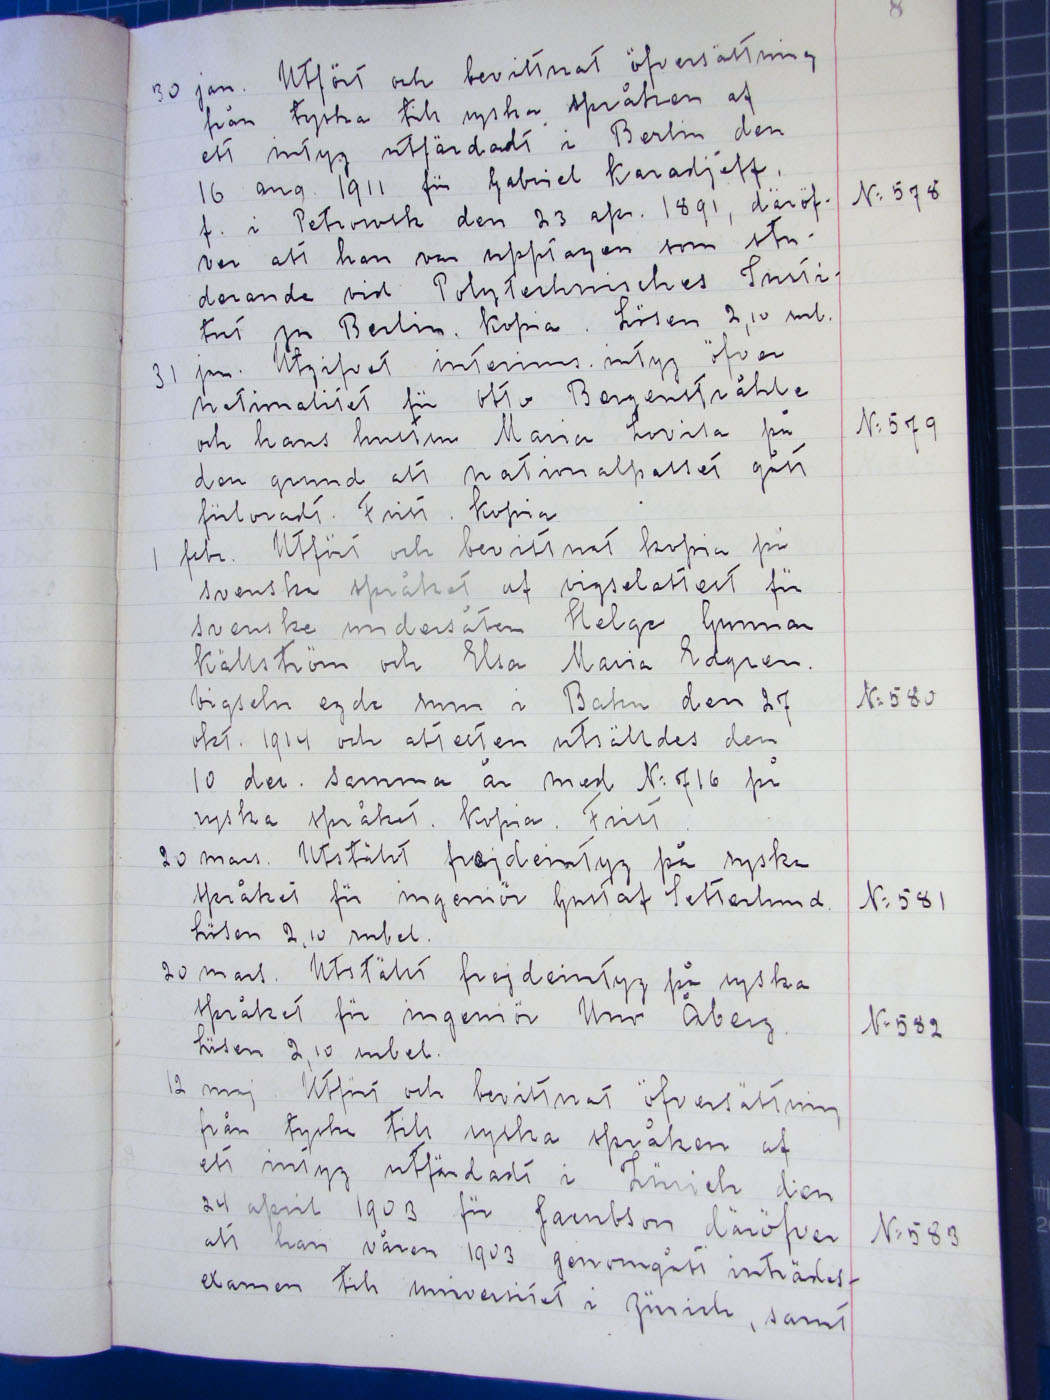 8
30 jan. Utfört och bevittnat öfversättning
från tyska till ryska språken af
ett intyg utfärdadt i Berlin den
16 aug. 1911 för Gabriel Karadjeff,
f. i Petrowsk den 23 apr. 1891, däröf- N: 578
ver att han var upptagen som stu-
derande vid Polytechnisches Insti-
tut zu Berlin. Kopia. Lösen 2,10 rub.
31 jan. Utgifvet interims-intyg öfver
nationalitet för Otto Bergenstråhle
och hans hustru Maria Lovisa på N: 579
den grund att nationalpasset gått
förloradt. Fritt. Kopia
1 febr. Utfört och bevittnat kopia på
svenska språket af vigselattest för
svenske undersåten Helge Gunnar
Källström och Elsa Maria Edgren.
Vigseln egde rum i Baku den 27 N: 580
okt. 1914 och attesten utställdes den
10 dec. samma år med N: 716 på
ryska språket. Kopia. Fritt.
20 mars. Utstäldt frejdeintyg på ryska
språket för ingeniör Gustaf Setterlund. N: 581
Lösen 2,10 rubel.
20 mars. Utstäldt frejdeintyg på ryska
språket för ingeniör Uno Åberg. N: 582
Lösen 2,10 rubel.
12 maj. Utfört och bevittnat öfversättning
från tyska till ryska språken af
ett intyg utfärdadt i Zürich den
24 april 1903 för Jacobson däröfver N: 583
att han våren 1903 genomgått inträdes-
examen till universitet i Zürich, samt